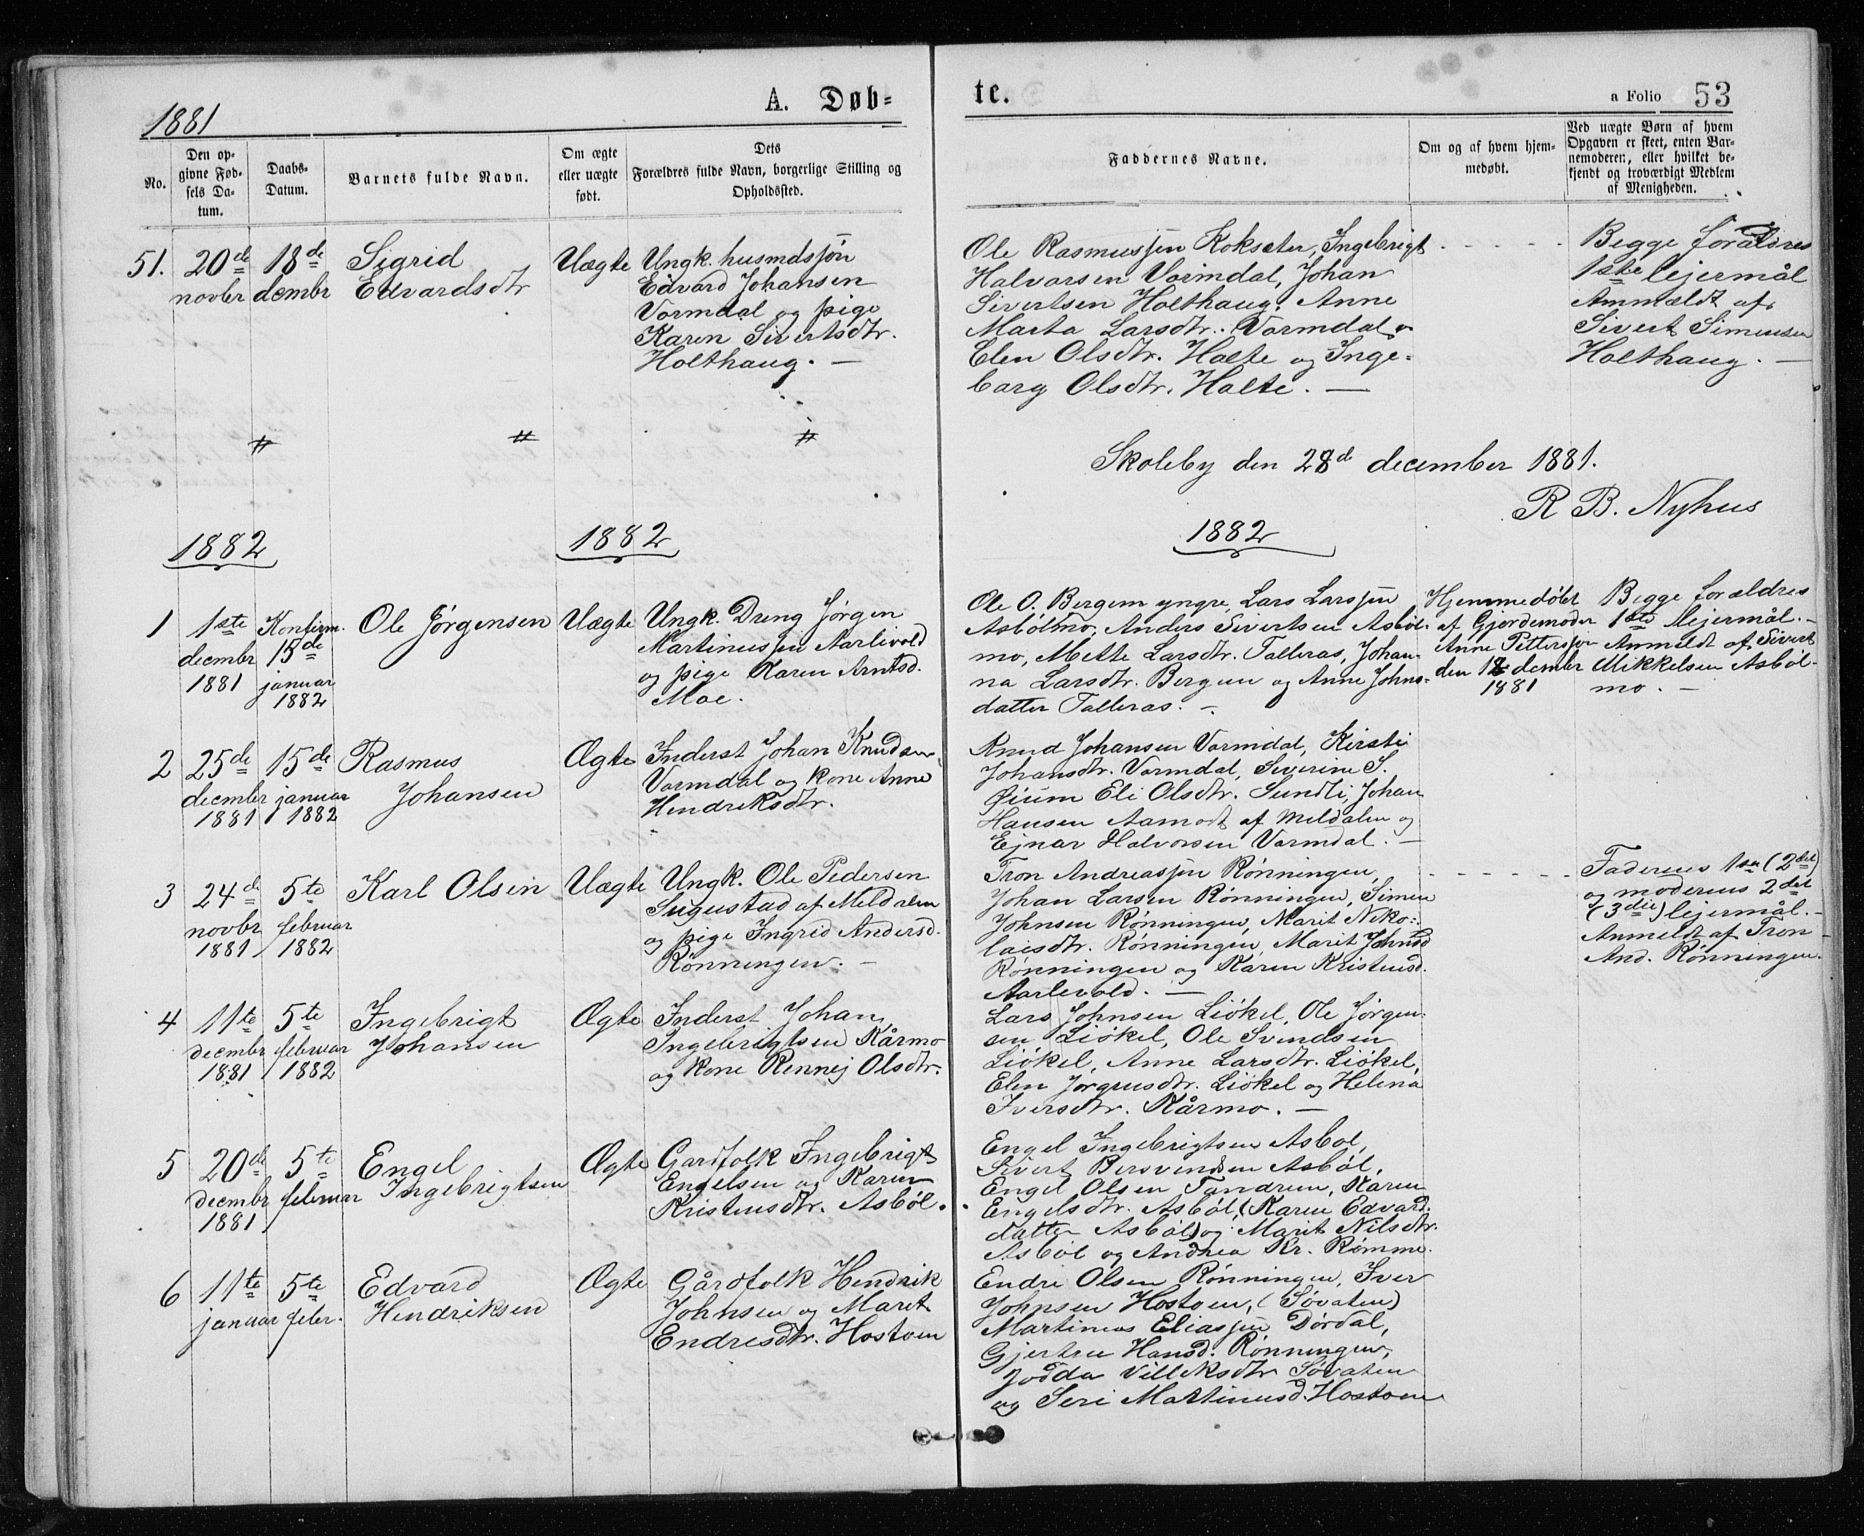 1881
A. Døb-
te.
a Folio 53
No.
Den op-
givne Fød-
sels Da-
tum.
Daabs-
Datum.
Barnets fulde Navn.
Om ægte
eller uægte
født.
Dets
Forældres fulde Navn, borgerlige Stilling og
Opholdssted.
Faddernes Navne.
Om og af hvem hjem-
medøbt.
Ved uægte Børn af hvem
Opgaven er skeet, enten Bar-
nemoderen, eller hvilket be-
kjendt og troværdigt Medlem
af Menigheden.
51.
20de
novbr
18de
decmbr
Sigrid
Edvardsdtr
Uægte
Ungk. husmdsjøn
Edvard Johansen
Vormdal og pige
Karen Sivertsdtr.
Holthaug. —
Ole Rasmussen Kokseter, Ingebrigt
Halvorsen Vormdal, Johan
Sivertsen Holthaug, Anne
Marta Larsdtr. Vormdal,
Elen Olsdtr. Holte og Inge-
borg Olsdtr. Holte. —
Begge forældres
1ste lejermål
Anmældt af
Sivert Simensen
Holthaug. —
Skoleby den 28de december 1881.
R B. Nyhus
1882
1882
1882
1
1ste
decmbr
1881
Konfirm.
15de
januar
1882
Ole Jørgensen
Uægte
Ungk. Dreng Jørgen
Martinussen Aarlivold
og pige Karen Arntsd.
Moe.
Ole O. Bergem yngre, Lars Larssen
Asbølmo, Anders Sivertsen Asbøl-
mo, Mette Larsdtr. Talleras, Johan-
na Larsdtr. Bergem og Anne Johns-
datter Talleras. —
Hjemmedøbt
af Gjordemoder
Anne Pettersen
den decmbr
1881
Begge forældres
1ste lejermål. —
Anmeldt af Sivert
Mikkelsen Asbøl-
mo. —
2
25de
decmbr
1881
15de
januar
1882
Rasmus
Johansen
Ægte
Inderst Johan Knudsen
Vormdal og kone Anne
Hendriksdtr.
Knud Johansen Vormdal, Kirsti
Johansdtr. Vormdal, Severine S.
Øium Eli Olsdtr. Sundli, Johan
Hansen Aamodt af Meldalen og
Ejnar Halvorsen Vormdal. —
3
24de
novbr
1881
5te
februar
1882
Karl Olsen
Uægte
Ungk. Ole Pedersen
Sugustad af Meldalen
og pige Ingrid Andersd.
Rønningen. —
Tron Andreassen Rønningen,
Johan Larsen Rønningen, Simen
Johnsen Rønningen, Marit Niko-
laisdtr. Rønningen, Marit Johnsd
Rønningen og Karen Kristensd.
Aarlevold. —
Faderens 1ste (2det)
og moderens 2det
(3die) lejermål. —
Anmeldt af Tron
And. Rønningen.
4
11te
decmbr
1881
5te
februar
1882
Ingebrigt
Johansen
Ægte
Inderst Johan
Ingebrigtsen Kårmo
og kone Rennej Olsdtr.
Lars Johnsen Liøkel, Ole Jørgen-
sen Liøkel, Ole Svendsen
Liøkel, Anne Larsdtr. Liøkel,
Elen Jørgensdtr. Liøkel og Helena
Iversdtr. Kårmo. —
5
20de
decmbr
1881
5te
februar
Engel
Ingebrigtsen
Ægte
Gardfolk Ingebrigt
Engelsen og Karen
Kristensdtr. Asbøl.
Engel Ingebrigtsen Asbøl,
Sivert Bersvendsen Asbøl,
Engel Olsen Tandrum, Karen
Engelsdtr. Asbøl, (Karen Edvard-
datter Asbøl) og Marit Nilsdtr.
Asbøl og Andrea Kr. Rømme.
6
11te
januar
5te
febr.
Edvard
Hendriksen
Ægte
Gårdfolk Hendrik
Johnsen og Marit
Endresdtr. Hostoen
Endre Olsen Rønningen, Iver
Johnsen Hostoen, (Søvaten)
Martinus Eliassen Dørdal,
Gjertru Hansd. Rønningen,
Jodda Villeksdtr Søvaten
og Seri Martinusd. Hostoen